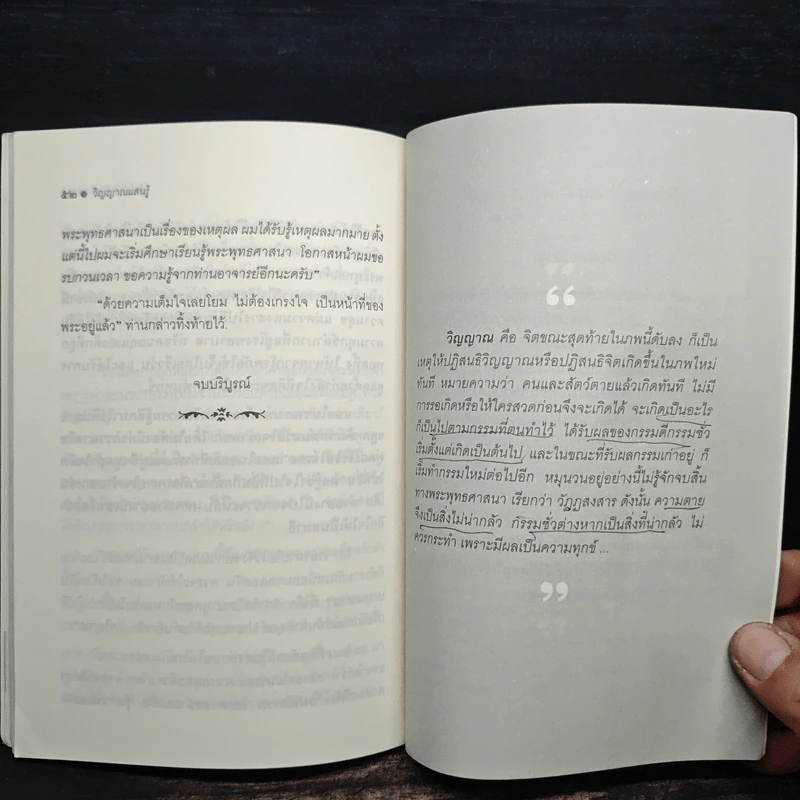 ๕๒ ● วิญญาณแสนรู้
พระพุทธศาสนาเป็นเรื่องของเหตุผล ผมได้รับรู้เหตุผลมากมาย ตั้ง
แต่นี้ไปผมจะเริ่มศึกษาเรียนรู้พระพุทธศาสนา โอกาสหน้าผมขอ
รบกวนเวลา ขอความรู้จากท่านอาจารย์อีกนะครับ”
“ด้วยความเต็มใจเลยโยม ไม่ต้องเกรงใจ เป็นหน้าที่ของ
พระอยู่แล้ว” ท่านกล่าวทิ้งท้ายไว้.
จบบริบูรณ์
“
วิญญาณ คือ จิตขณะสุดท้ายในภพนี้ดับลง ก็เป็น
เหตุให้ปฏิสนธิวิญญาณหรือปฏิสนธิจิตเกิดขึ้นในภพใหม่
ทันที หมายความว่า คนและสัตว์ตายแล้วเกิดทันที ไม่มี
การรอเกิดหรือให้ใครสวดก่อนจึงจะเกิดได้ จะเกิดเป็นอะไร
ก็เป็นไปตามกรรมที่ตนทำไว้ ได้รับผลของกรรมดีกรรมชั่ว
เริ่มตั้งแต่เกิดเป็นต้นไป และในขณะที่รับผลกรรมเก่าอยู่ ก็
เริ่มทำกรรมใหม่ต่อไปอีก หมุนวนอยู่อย่างนี้ไม่รู้จักจบสิ้น
ทางพระพุทธศาสนา เรียกว่า วัฏฏสงสาร ดังนั้น ความตาย
จึงเป็นสิ่งไม่น่ากลัว กรรมชั่วต่างหากเป็นสิ่งที่น่ากลัว ไม่
ควรกระทำ เพราะมีผลเป็นความทุกข์ ...
”